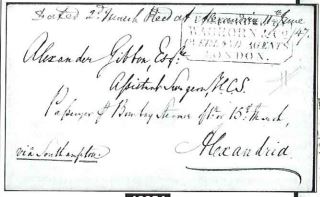 Dated 2d March Recd at Alexandria 11th June /47.
WAGHORN & Co
AGENTS
LONDON.
Alexander Gibbon Esqre
Assistant Surgeon H.C.S.
Passenger pr Bombay Steamer of 15th March,
Alexandria
via Southampton